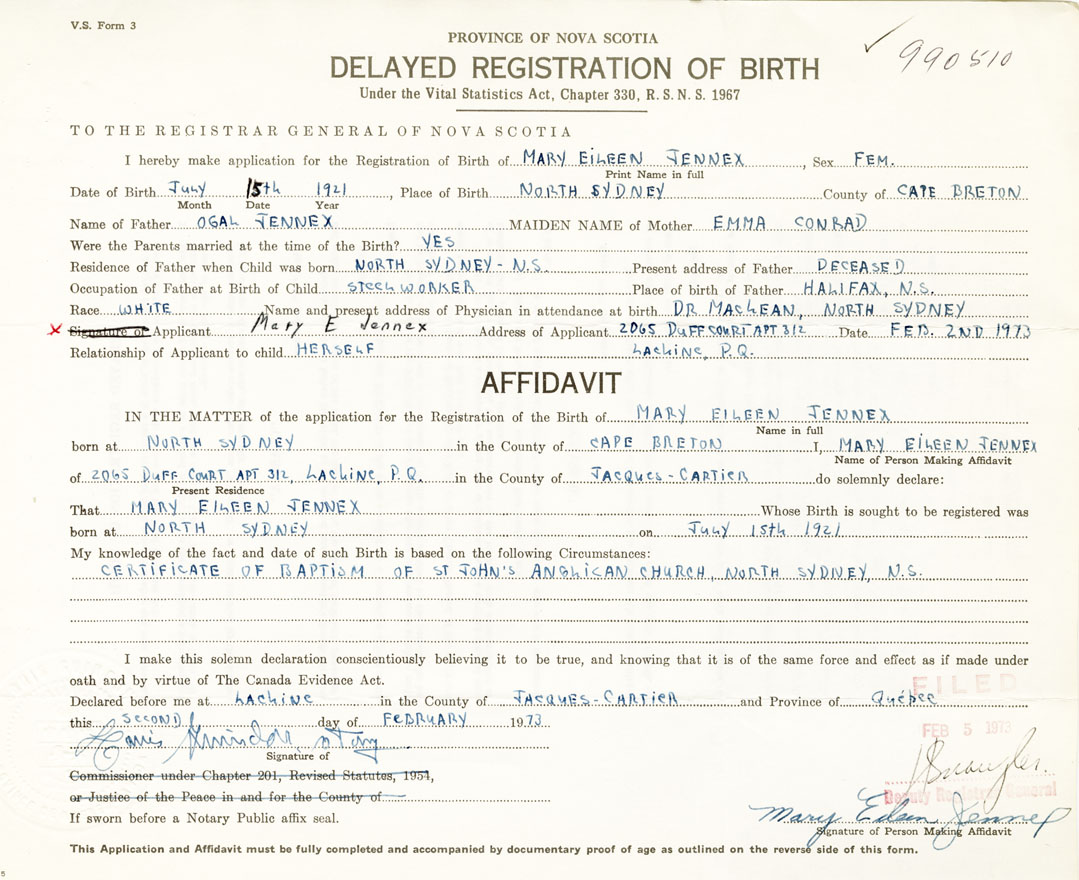 V.S. Form 3
990510
PROVINCE OF NOVA SCOTIA
DELAYED REGISTRATION OF BIRTH
Under the Vital Statistics Act, Chapter 330, R. S. N. S. 1967
TO THE REGISTRAR GENERAL OF NOVA SCOTIA
I hereby make application for the Registration of Birth of MARY EILEEN JENNEX, Sex FEM.
Print Name in full
Date of Birth July 15th 1921, Place of Birth NORTH SYDNEY County of CAPE BRETON
Month Date Year
Name of Father OGAL JENNEX MAIDEN NAME of Mother EMMA CONRAD
Were the Parents married at the time of the Birth? YES
Residence of Father when Child was born NORTH SYDNEY - N.S. Present address of Father DECEASED
Occupation of Father at Birth of Child STEEL WORKER Place of birth of Father HALIFAX, N.S.
Race WHITE Name and present address of Physician in attendance at birth DR. MACLEAN, NORTH SYDNEY
x Signature of Applicant Mary E Jennex Address of Applicant 2065 DUFF COURT APT 312 Date FEB. 2ND 1973
Relationship of Applicant to child HERSELF LACHINE, P.Q.
AFFIDAVIT
IN THE MATTER of the application for the Registration of the Birth of MARY EILEEN JENNEX
Name in full
born at NORTH SYDNEY in the County of CAPE BRETON I, MARY EILEEN JENNEX
Name of Person Making Affidavit
of 2065 DUFF COURT APT 312, LACHINE, P.Q. in the County of JACQUES-CARTIER do solemnly declare:
Present Residence
That MARY EILEEN JENNEX Whose Birth is sought to be registered was
born at NORTH SYDNEY on July 15th 1921
My knowledge of the fact and date of such Birth is based on the following Circumstances:
CERTIFICATE OF BAPTISM OF ST JOHN'S ANGLICAN CHURCH, NORTH SYDNEY, N.S.
I make this solemn declaration conscientiously believing it to be true, and knowing that it is of the same force and effect as if made under
oath and by virtue of The Canada Evidence Act.
FILED
Declared before me at LACHINE in the County of JACQUES-CARTIER and Province of Québec
this SECOND day of FEBRUARY 1973
FEB 5 1973
Signature of
Commissioner under Chapter 201, Revised Statutes, 1954,
or Justice of the Peace in and for the County of
Deputy Registrar General
If sworn before a Notary Public affix seal.
Mary Eileen Jennex
Signature of Person Making Affidavit
This Application and Affidavit must be fully completed and accompanied by documentary proof of age as outlined on the reverse side of this form.
5